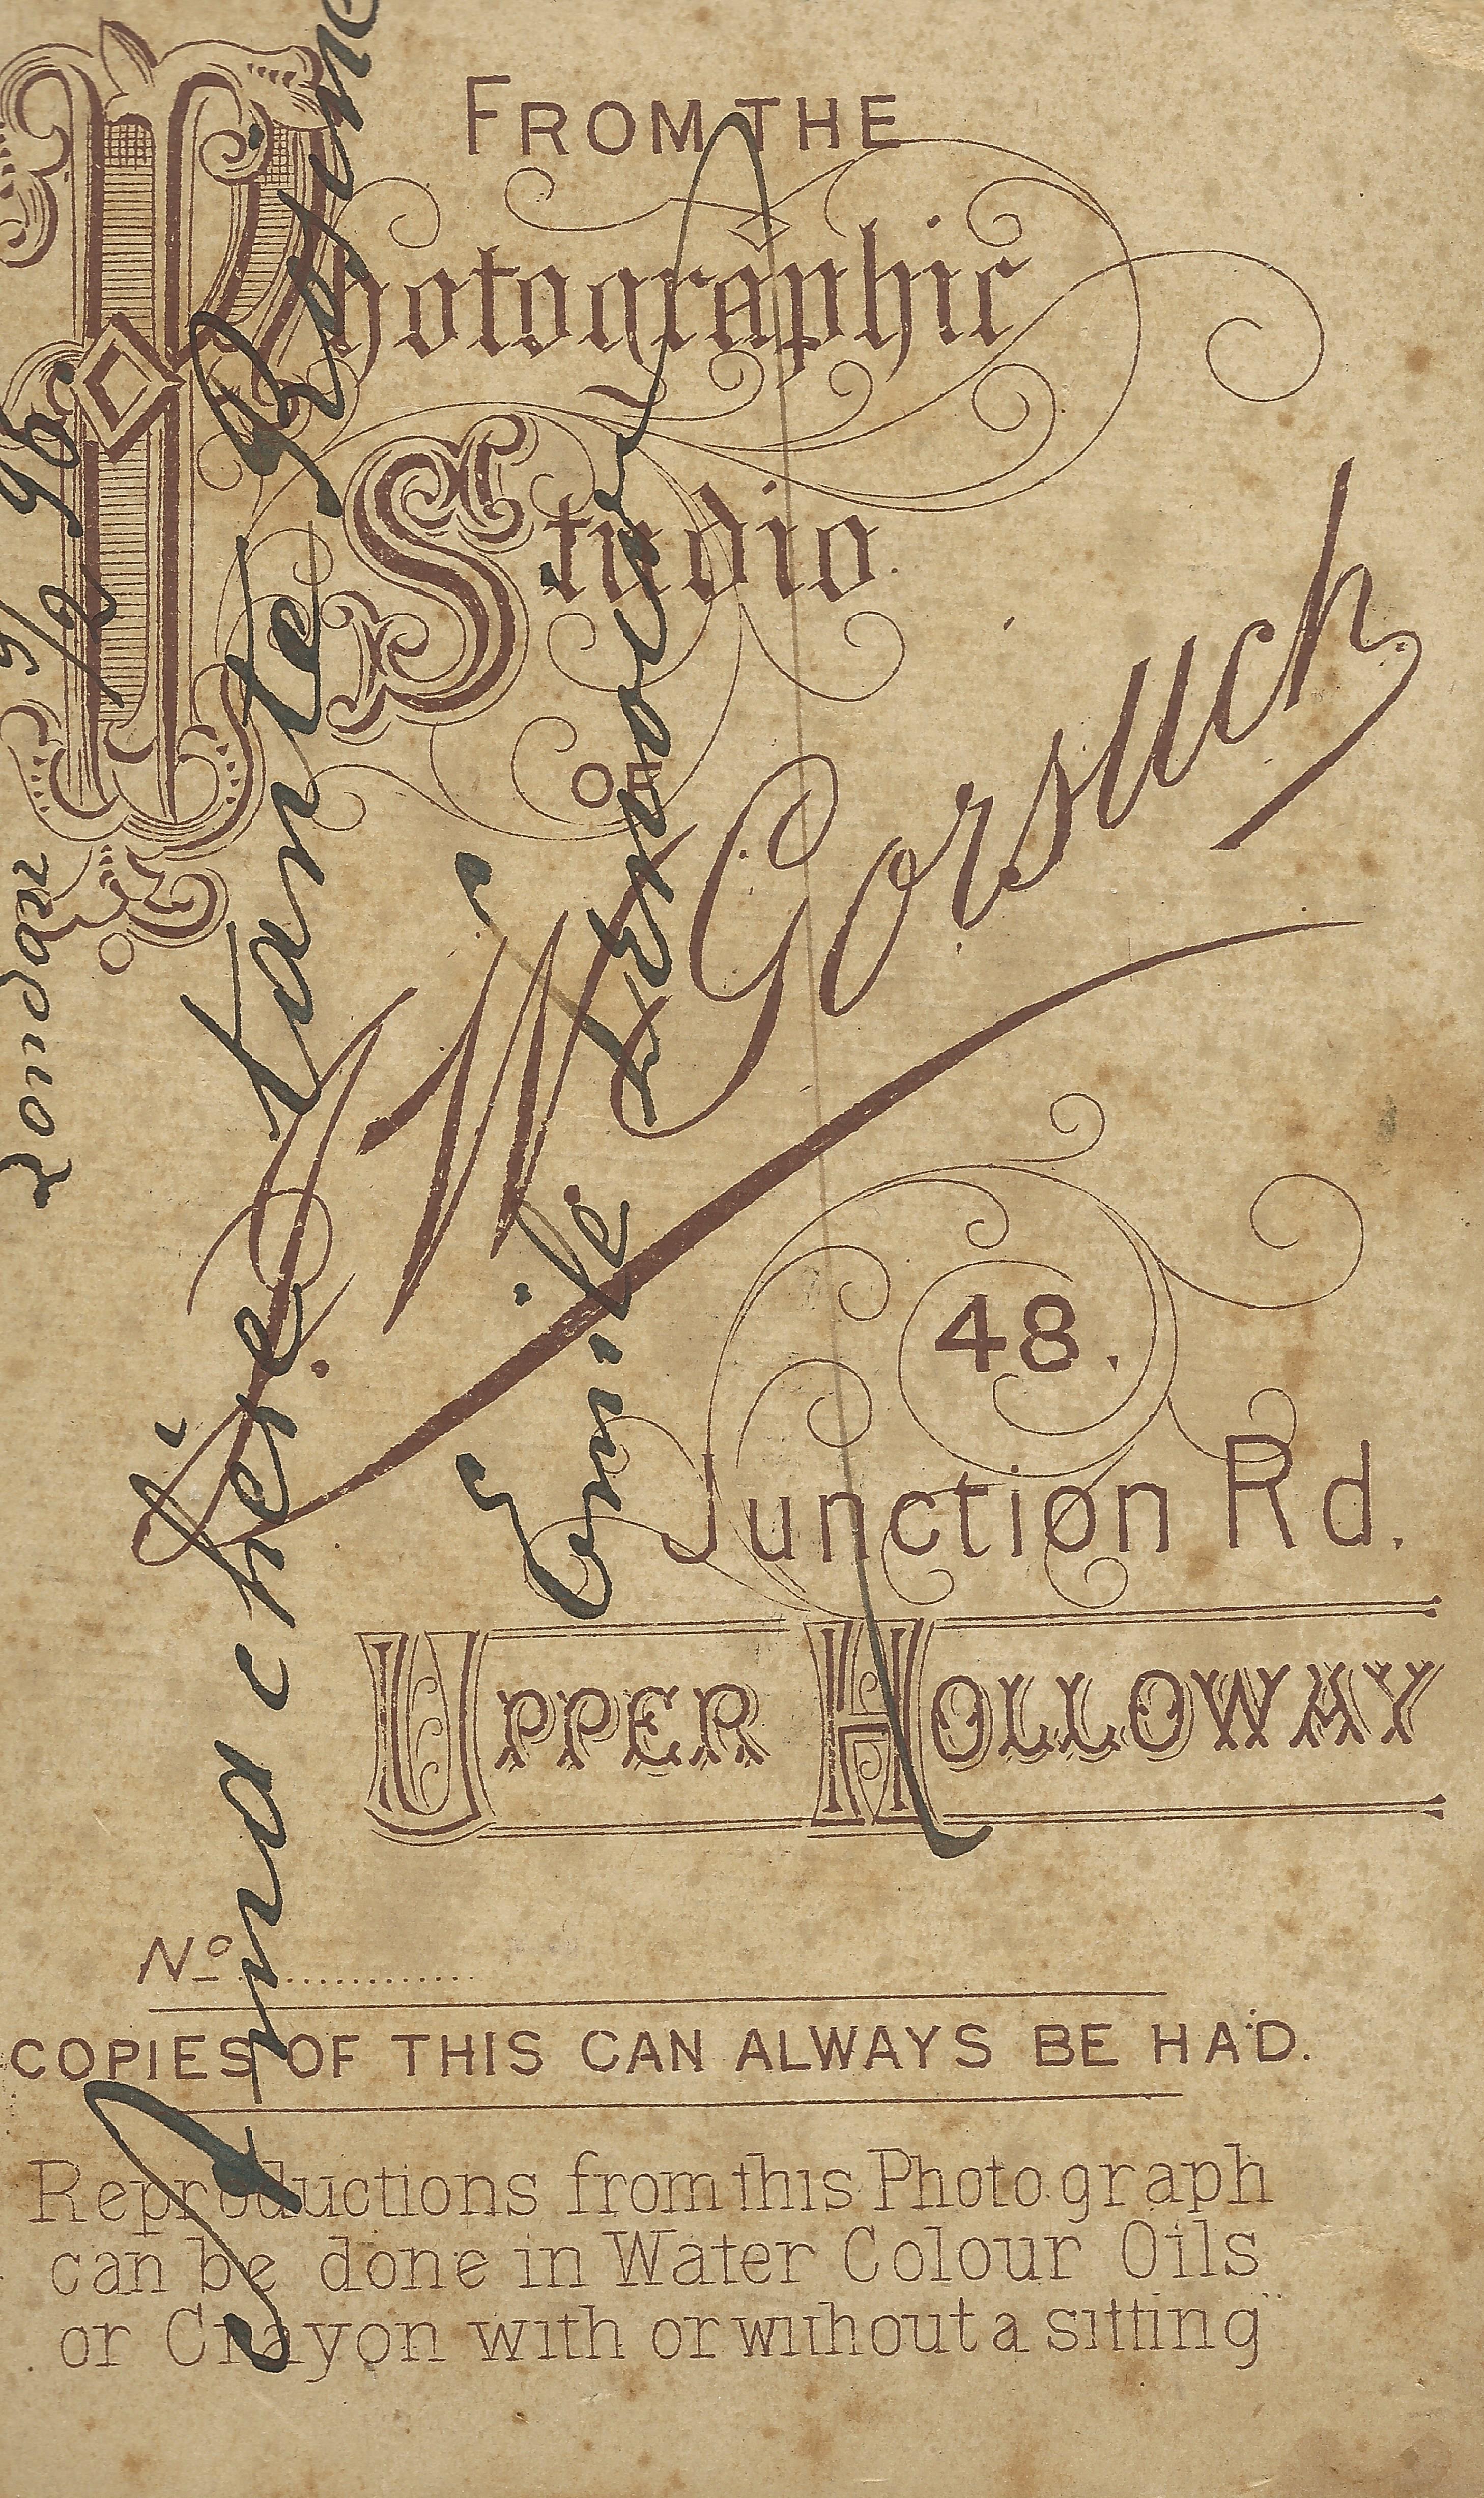 FROM THE
Photographic
Studio.
OF
J. W Gorsuch
48.
Junction Rd.
UPPER HOLLOWAY
No
COPIES OF THIS CAN ALWAYS BE HAD.
Reproductions from this Photograph
can be done in Water Colour Oils
or Crayon with or without a sitting
London /2 96.
A ma chère tante
Emile